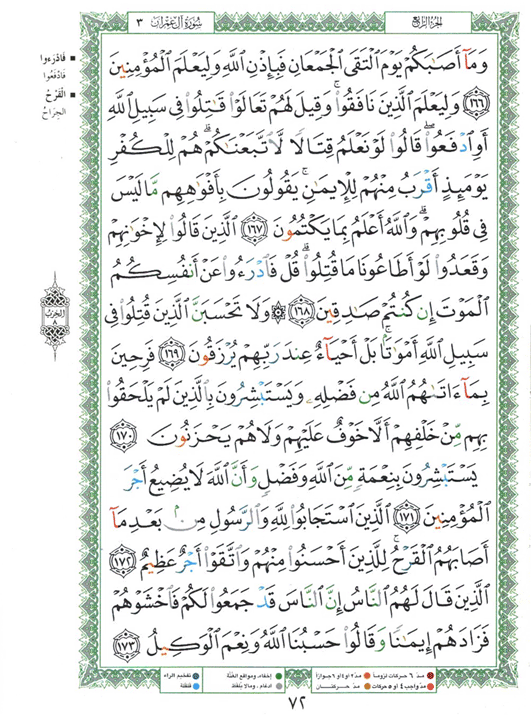 الجزء الرابع
سورة آل عمران ٣
وَمَآ أَصَٰبَكُمْ يَوْمَ ٱلْتَقَى ٱلْجَمْعَانِ فَبِإِذْنِ ٱللَّهِ وَلِيَعْلَمَ ٱلْمُؤْمِنِينَ
١٦٦ وَلِيَعْلَمَ ٱلَّذِينَ نَافَقُوا۟ ۚ وَقِيلَ لَهُمْ تَعَالَوْا۟ قَٰتِلُوا۟ فِى سَبِيلِ ٱللَّهِ
أَوِ ٱدْفَعُوا۟ ۖ قَالُوا۟ لَوْ نَعْلَمُ قِتَالًا لَّٱتَّبَعْنَٰكُمْ ۗ هُمْ لِلْكُفْرِ
يَوْمَئِذٍ أَقْرَبُ مِنْهُمْ لِلْإِيمَٰنِ ۚ يَقُولُونَ بِأَفْوَٰهِهِم مَّا لَيْسَ
فِى قُلُوبِهِمْ ۗ وَٱللَّهُ أَعْلَمُ بِمَا يَكْتُمُونَ ١٦٧ ٱلَّذِينَ قَالُوا۟ لِإِخْوَٰنِهِمْ
وَقَعَدُوا۟ لَوْ أَطَاعُونَا مَا قُتِلُوا۟ ۗ قُلْ فَٱدْرَءُوا۟ عَنْ أَنفُسِكُمُ
ٱلْمَوْتَ إِن كُنتُمْ صَٰدِقِينَ ١٦٨ ۞ وَلَا تَحْسَبَنَّ ٱلَّذِينَ قُتِلُوا۟ فِى
سَبِيلِ ٱللَّهِ أَمْوَٰتًۢا ۚ بَلْ أَحْيَآءٌ عِندَ رَبِّهِمْ يُرْزَقُونَ ١٦٩ فَرِحِينَ
بِمَآ ءَاتَىٰهُمُ ٱللَّهُ مِن فَضْلِهِۦ وَيَسْتَبْشِرُونَ بِٱلَّذِينَ لَمْ يَلْحَقُوا۟
بِهِم مِّنْ خَلْفِهِمْ أَلَّا خَوْفٌ عَلَيْهِمْ وَلَا هُمْ يَحْزَنُونَ ١٧٠
يَسْتَبْشِرُونَ بِنِعْمَةٍ مِّنَ ٱللَّهِ وَفَضْلٍ وَأَنَّ ٱللَّهَ لَا يُضِيعُ أَجْرَ
ٱلْمُؤْمِنِينَ ١٧١ ٱلَّذِينَ ٱسْتَجَابُوا۟ لِلَّهِ وَٱلرَّسُولِ مِنۢ بَعْدِ مَآ
أَصَابَهُمُ ٱلْقَرْحُ ۚ لِلَّذِينَ أَحْسَنُوا۟ مِنْهُمْ وَٱتَّقَوْا۟ أَجْرٌ عَظِيمٌ ١٧٢
ٱلَّذِينَ قَالَ لَهُمُ ٱلنَّاسُ إِنَّ ٱلنَّاسَ قَدْ جَمَعُوا۟ لَكُمْ فَٱخْشَوْهُمْ
فَزَادَهُمْ إِيمَٰنًا وَقَالُوا۟ حَسْبُنَا ٱللَّهُ وَنِعْمَ ٱلْوَكِيلُ ١٧٣
فَادْرَءُوا
فَادْفَعُوا
الْقَرْحُ
الجِرَاحُ
الحزب
٨
مدّ ٦ حركات لزوماً
مدّ ٢ أو ٤ أو ٦ جوازاً
إخفاء، ومواقع الغُنَّة
تفخيم الراء
مدّ واجب ٤ أو ٥ حركات
مدّ حركتان
ادغام، وما لا يُلفظ
قلقلة
٧٢